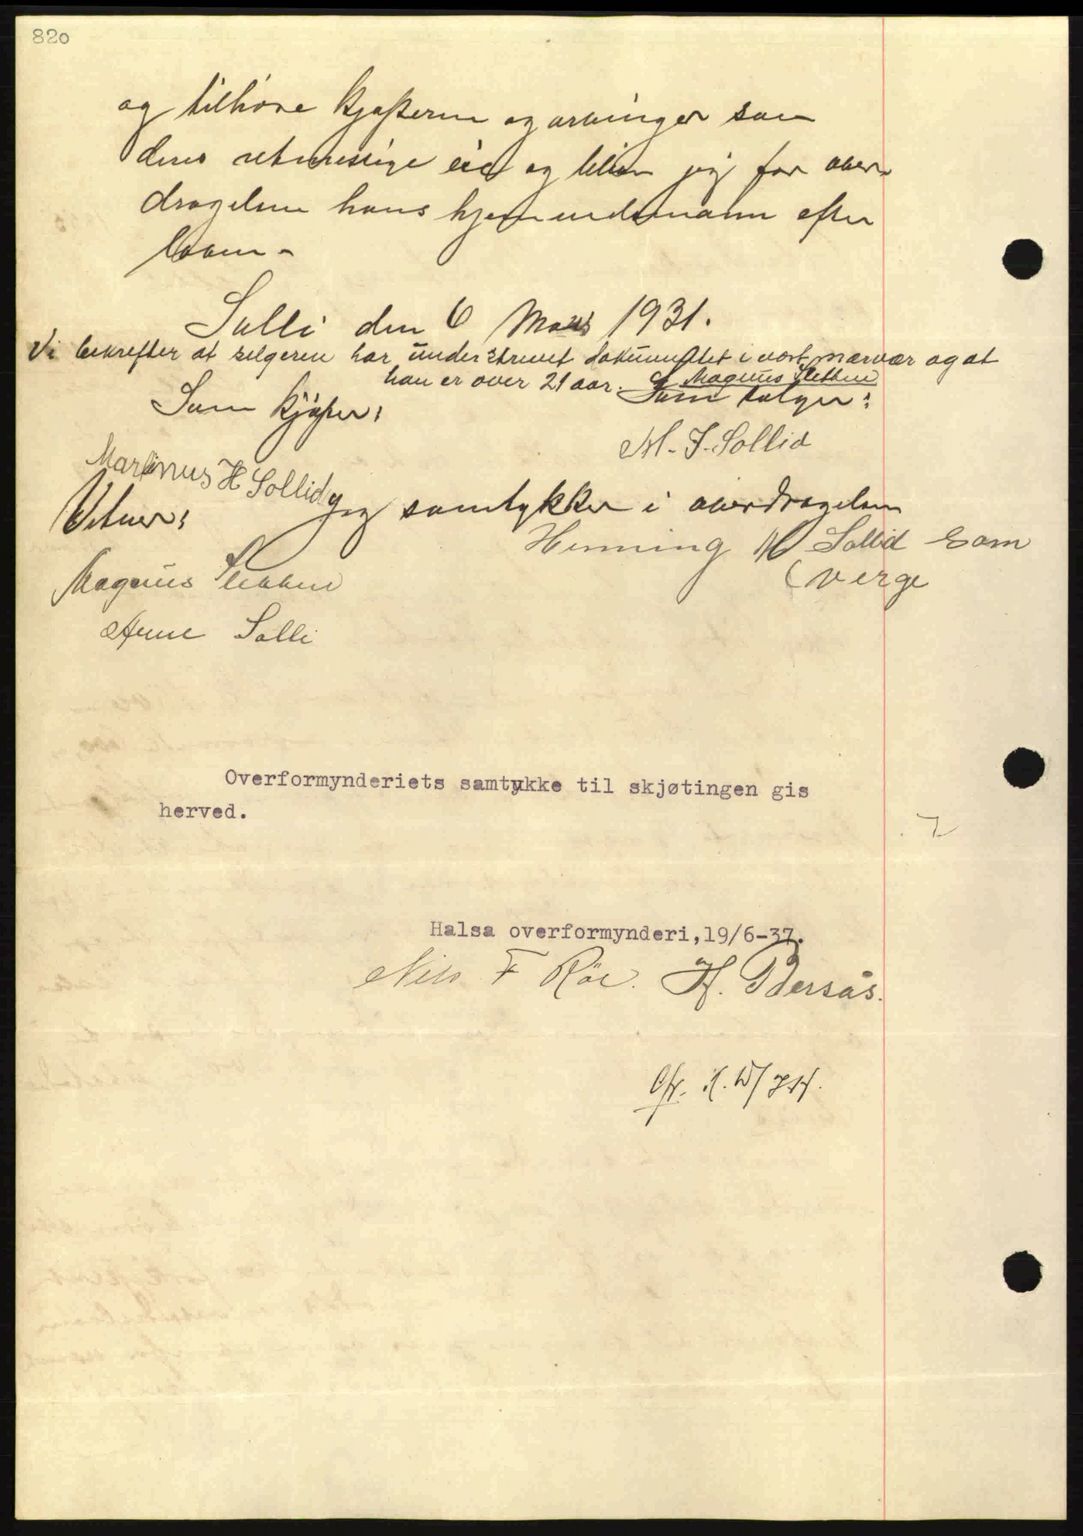 820
og tilhöre kjøperen og arvinger som
deres retmessige eie og bliver jeg for over-
dragelsen hans hjemmelsmann efter
loven -
Solli den 6 Mars 1931.
Vi bekrefter at selgeren har underskrevet dokumentet i vort nærvær og at
han er over 21 aar. Magnus Slekken
Som kjøper: Som selger:
M. J. Sollid
Marsinus H Sollid
Vitner: Jeg samtykker i overdragelsen
Henning M Sollid som
(verge
Magnus
Arne Solli
Overformynderiets samtykke til skjøtingen gis
herved.
Halsa overformynderi,19/6-37.
Nils F Röe. H. Bersås.